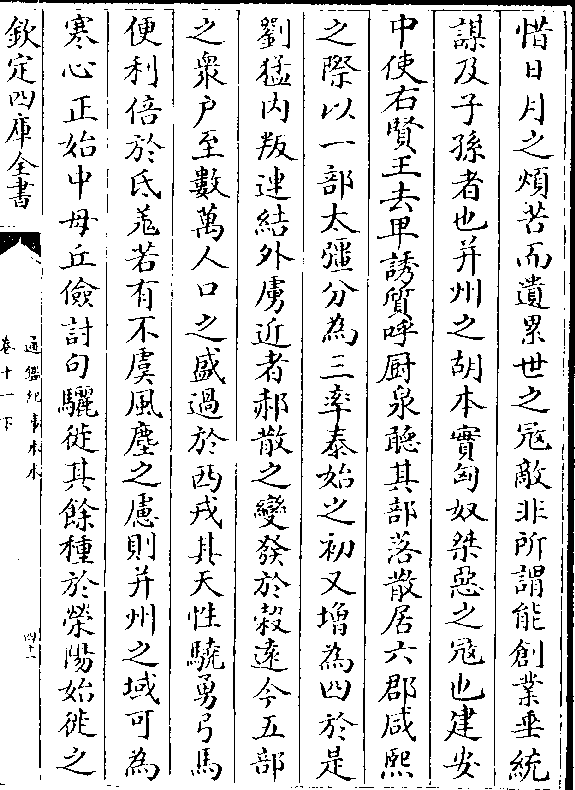 惜日月之煩苦而遺累世之冦敵非所謂能創業垂統
謀及子孫者也并州之胡本實匈奴桀惡之冦也建安
中使右賢王去卑誘質呼厨泉聽其部落散居六郡咸熙
之際以一部太彊分為三率泰始之初又增為四於是
劉猛内叛連結外虜近者郝散之變發於榖逺今五部
之衆户至數萬人口之盛過於西戎其天性驍勇弓馬
便利倍於氐羗若有不虞風塵之慮則并州之域可為
寒心正始中毋丘儉討句驪徙其餘種於滎陽始徙之
欽定四庫全書
通鑑紀事本末
卷十一下
四十二